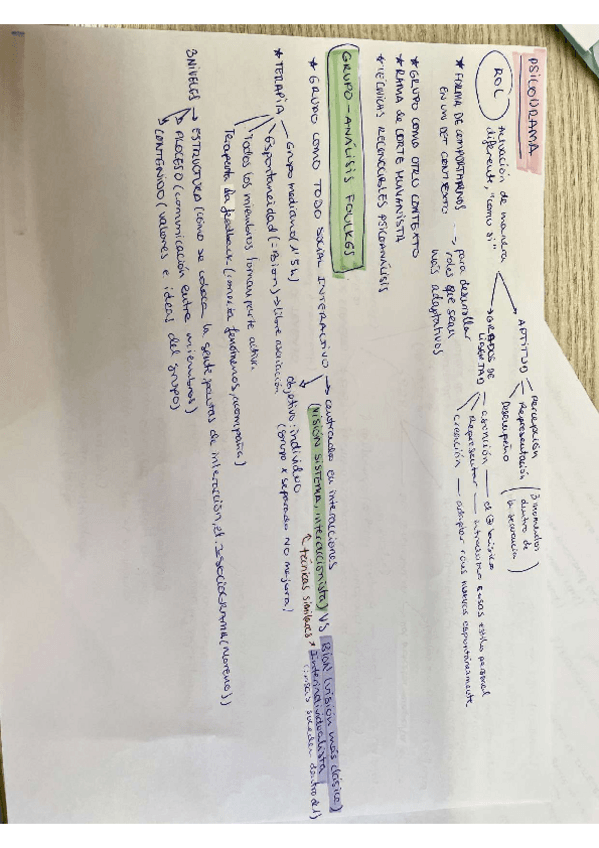 PSICODRAMA
ROL
Actuación de manera
diferente, "como si"
APTITUD
Percepción
Representación
Desempeño
(3 momentos
dentro de
la secuencia)
GRADOS DE
LIBERTAD
asunción — el + básico
Representar — introduzco cosas estilo personal
creación — adoptar roles nuevos espontáneamente
* FORMA DE COMPORTARNOS
EN UN DET. CONTEXTO
para desarrollar
roles que sean
más adaptativos
* GRUPO COMO OTRO CONTEXTO
* RAMA DE CORTE HUMANISTA
* TÉCNICAS RECONOCIBLES PSICOANÁLISIS
GRUPO-ANÁLISIS FOULKES
* GRUPO COMO TODO SOCIAL INTERACTIVO → centrado en interacciones
(VISIÓN SISTEMA, interaccionista) VS Bion (visión más clásica)
técnicas similares * Intraindividualista
suceden dentro del
Objetivo: individuo
(Grupo x separado NO mejora)
* TERAPIA — Grupo mediano (1'5h)
Espontaneidad (= Bion) → libre asociación
Todos los miembros toman parte activa.
Terapeuta da feedback (comenta fenómenos, acompaña)
3 NIVELES → ESTRUCTURA (cómo se coloca la gente, pautas de interacción, ej. SOCIOGRAMA (Moreno))
PROCESO (comunicación entre miembros)
CONTENIDO (valores e ideas del grupo)